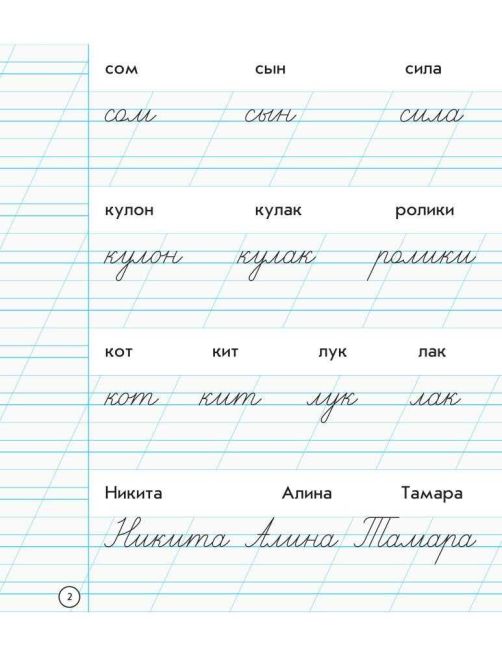 сом сын сила
сом сын сила
кулон кулак ролики
кулон кулак ролики
кот кит лук лак
кот кит лук лак
Никита Алина Тамара
Никита Алина Тамара
2